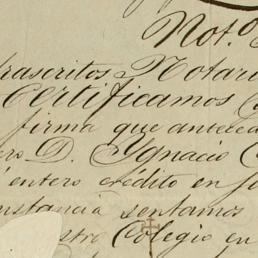 Not.º
rascritos Notari
Certificamos
firma que antecede
ero D. Ygnacio C
entero crédito en ju
nstancia sentamos
stro Colegio en